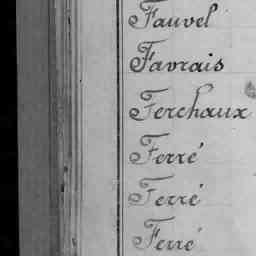 Fauvel
Favrais
Ferchaux
Ferré
Ferré
Ferré